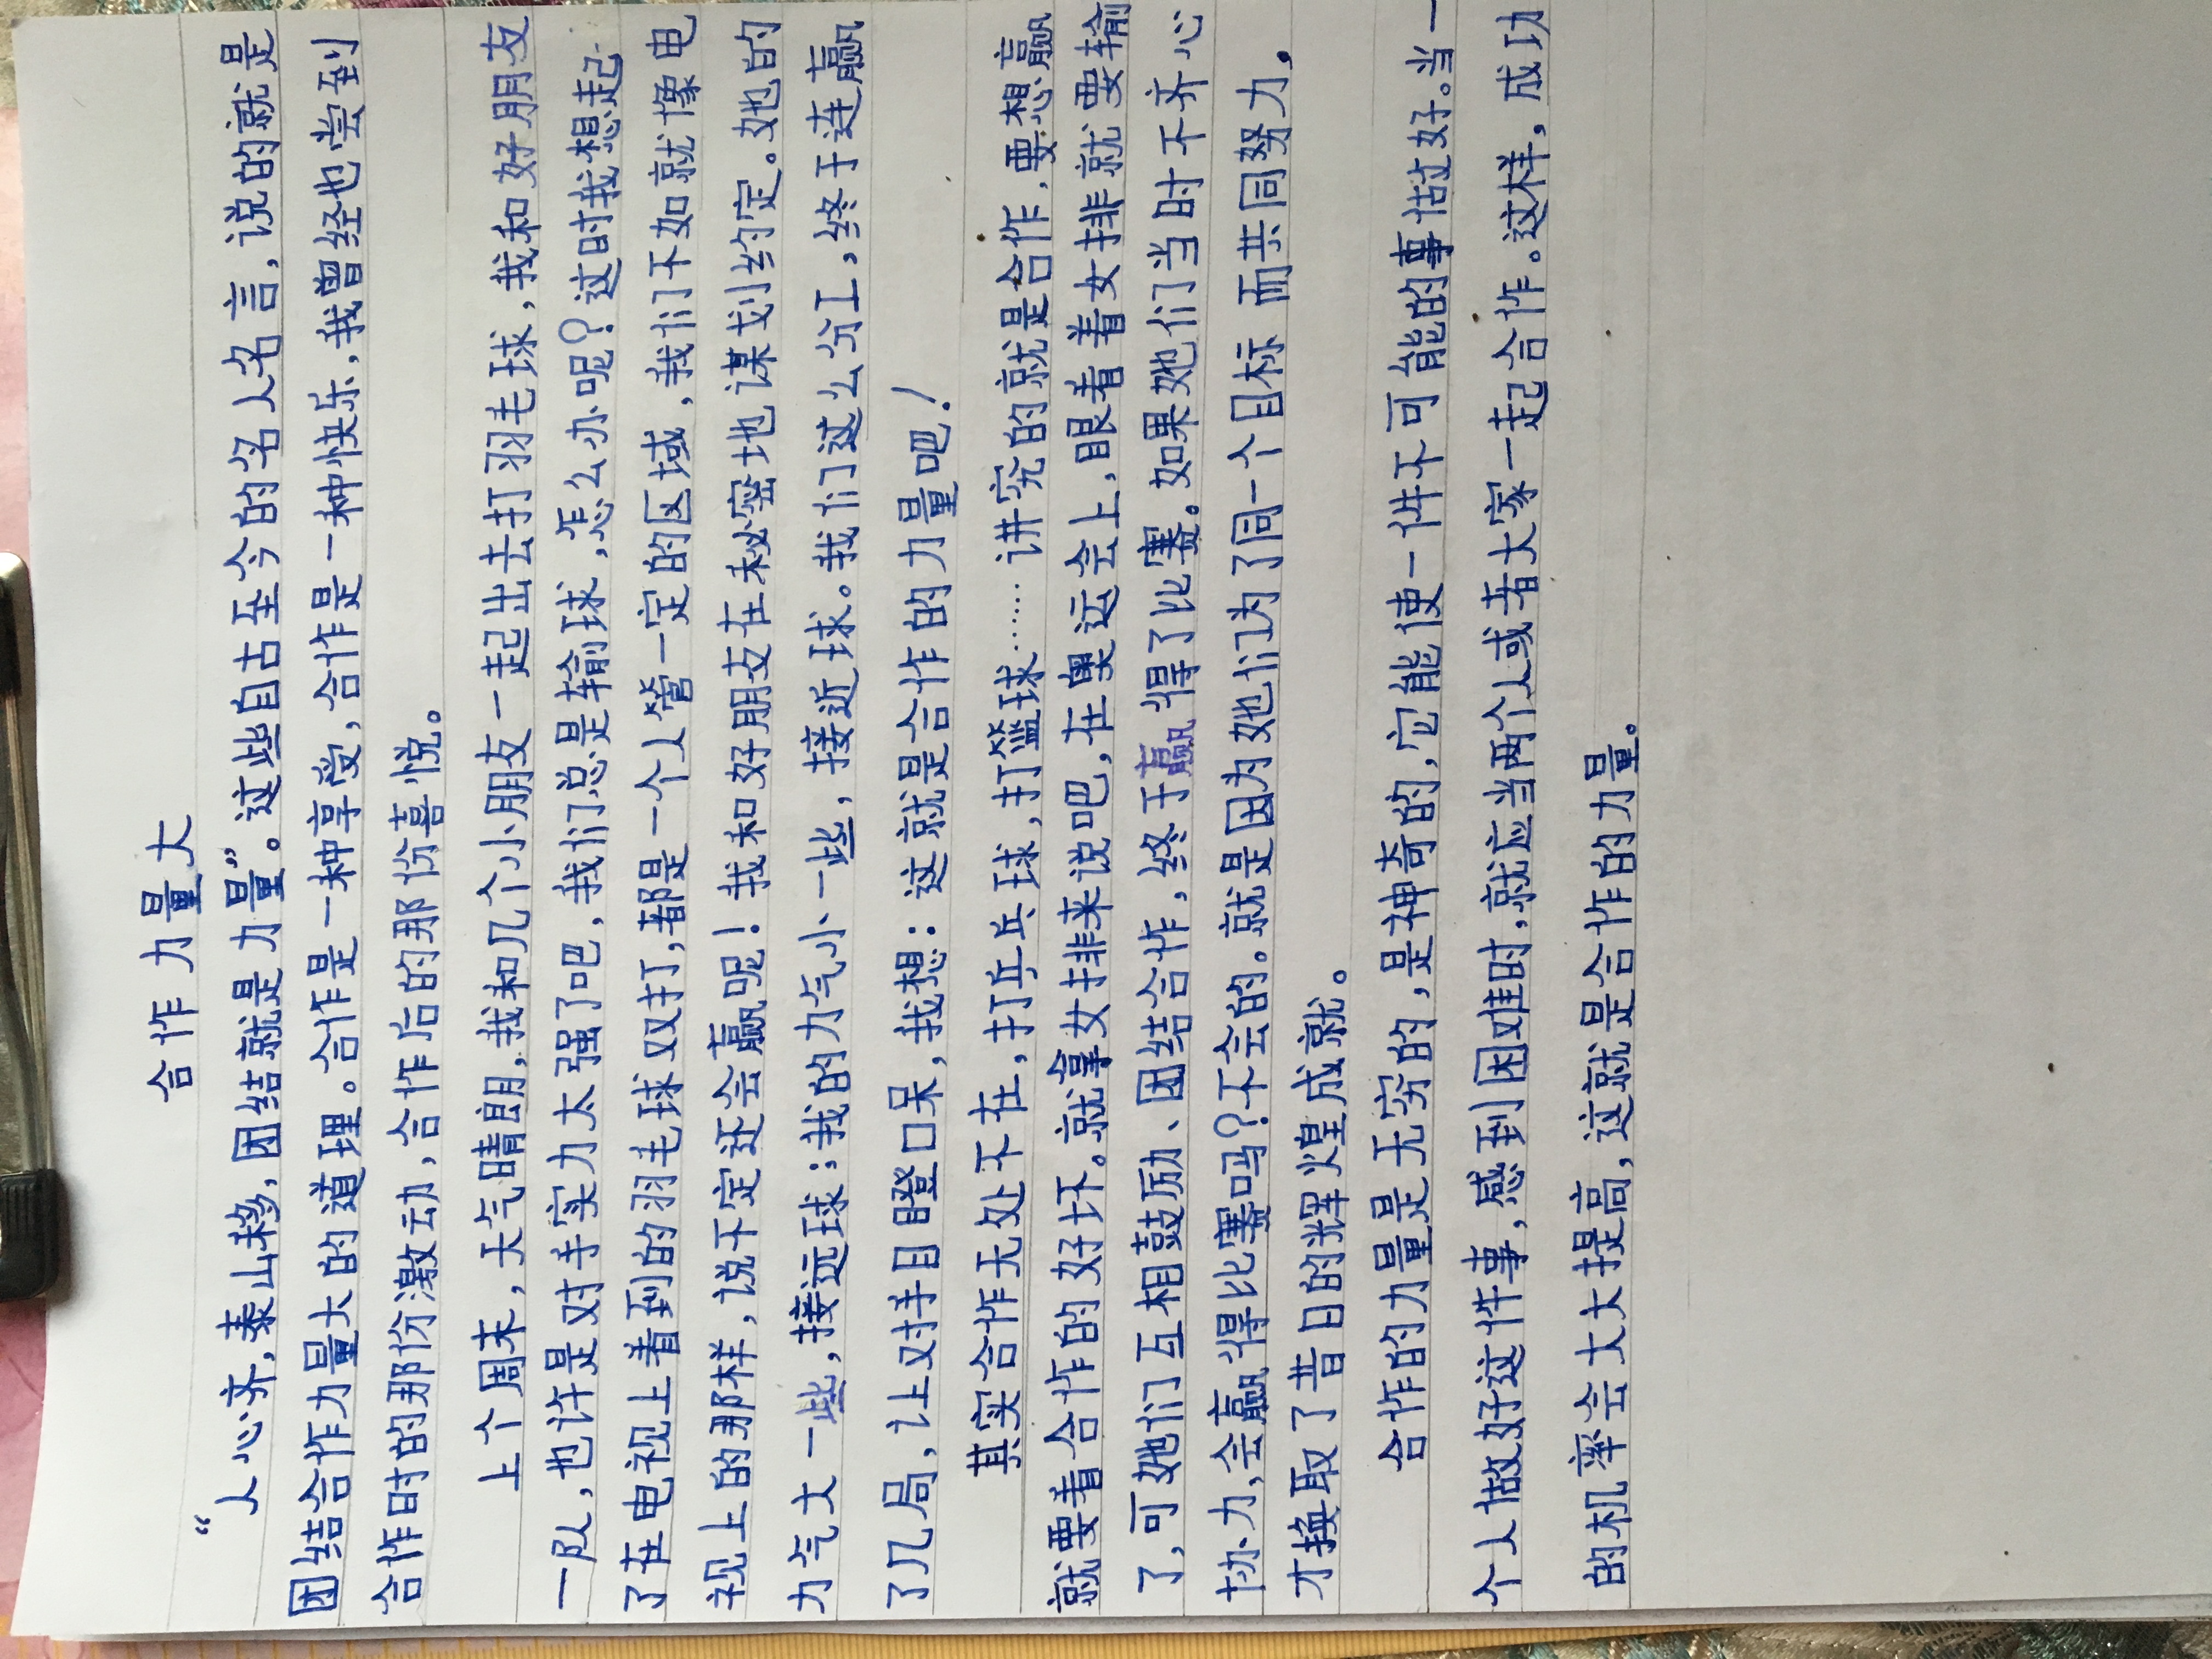 合作力量大
“人心齐,泰山移,团结就是力量”。这些自古至今的名人名言,说的就是
团结合作力量大的道理。合作是一种享受,合作是一种快乐,我曾经也尝到
合作时的那份激动,合作后的那份喜悦。
上个周末,天气晴朗,我和几个小朋友一起出去打羽毛球,我和好朋友
一队,也许是对手实力太强了吧,我们总是输球,怎么办呢?这时我想起
了在电视上看到的羽毛球双打,都是一个人管一定的区域,我们不如就像电
视上的那样,说不定还会赢呢!我和好朋友在秘密地谋划约定。她的
力气大一些,接远球;我的力气小一些,接近球。我们这么分工,终于连赢
了几局,让对手目瞪口呆,我想:这就是合作的力量吧!
其实合作无处不在,打乒乓球,打篮球……讲究的就是合作,要想赢
就要看合作的好坏。就拿女排来说吧,在奥运会上,眼看着女排就要输
了,可她们互相鼓励、团结合作,终于赢得了比赛。如果她们当时不齐心
协力,会赢得比赛吗?不会的。就是因为她们为了同一个目标 而共同努力,
才换取了昔日的辉煌成就。
合作的力量是无穷的,是神奇的,它能使一件不可能的事做好。当一
个人做好这件事,感到困难时,就应当两个人或者大家一起合作。这样,成功
的机率会大大提高,这就是合作的力量。